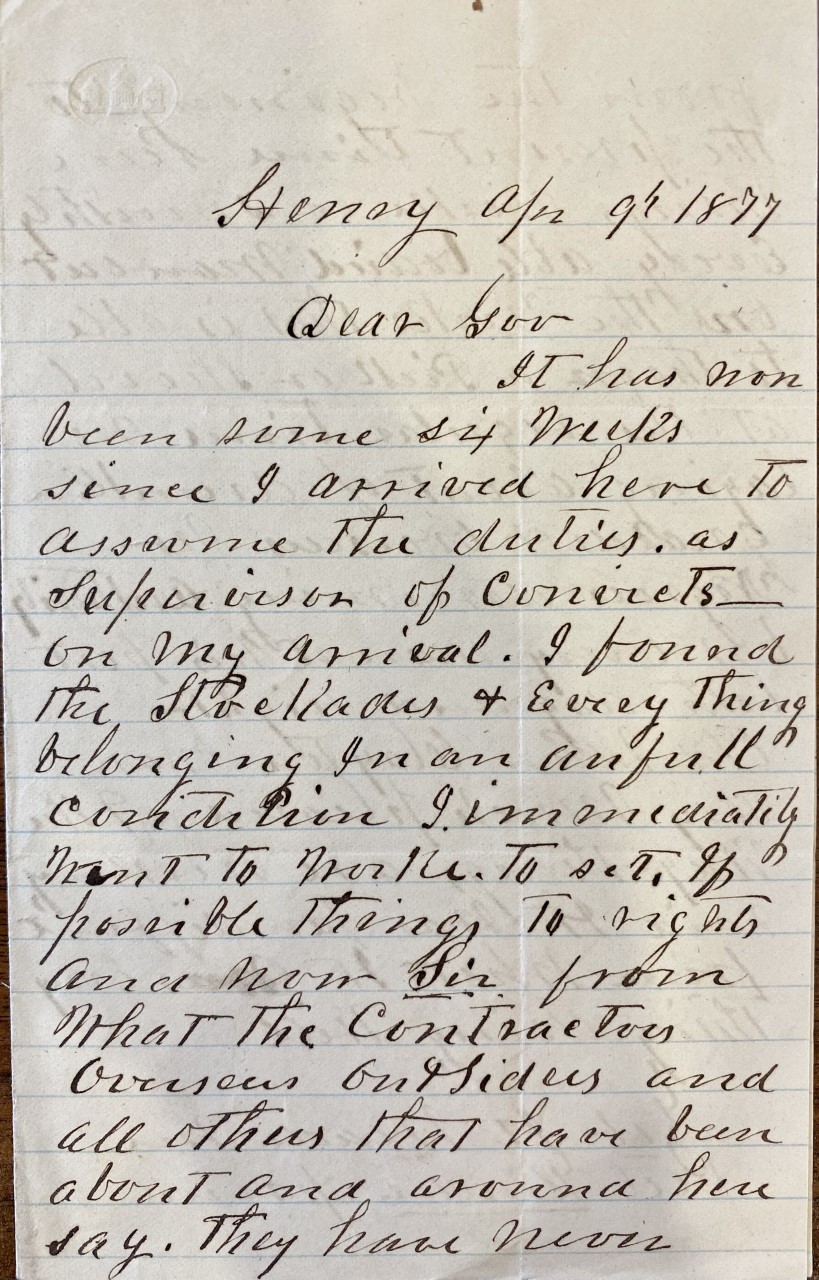 Henry Apr 9th 1877
Dear Gov
It has now
been some six Weeks
since I arrived here To
assume the duties. as
Supervisor of Convicts—
on my arrival. I found
the Stockades & Every Thing
belonging In an anfull
condition I. immediatily
Went To Worke. To set. If
possible Things To rights
And now Sir from
What The Contractors
Overseers OutSiders and
all others that have been
about and around here
say. They have never